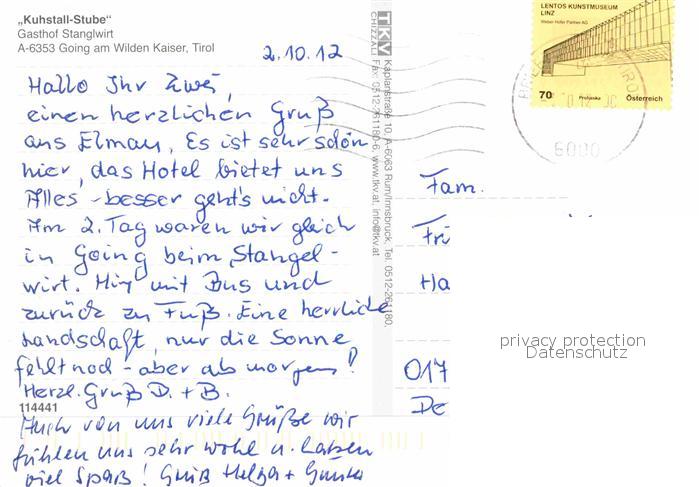 „Kuhstall-Stube“
Gasthof Stanglwirt
A-6353 Going am Wilden Kaiser, Tirol
2.10.12
Hallo Ihr Zwei,
einen herzlichen Gruß
aus Elmau. Es ist sehr schön
hier, das Hotel bietet uns
Alles - besser geht's nicht.
Am 2. Tag waren wir gleich
in Going beim Stangel-
wirt. Hin mit Bus und
zurück zu Fuß. Eine herrliche
Landschaft, nur die Sonne
fehlt noch - aber ab morgen!
Herzl. Gruß D. + B.
114441
Auch von uns viele Grüße wir
fühlen uns sehr wohl u. haben
viel Spaß! Gruß Helga + Gunter
TKV
CHIZZALI
Kaplanstraße 10, A-6063 Rum/Innsbruck, Tel. 0512-261180,
Fax: 0512-261180-6, www.tkv.at, info@tkv.at
LENTOS KUNSTMUSEUM
LINZ
Weber Hofer Partner AG
70
Prohaska
Österreich
6000
Fam.
Fri
Ha
017
De
privacy protection
Datenschutz